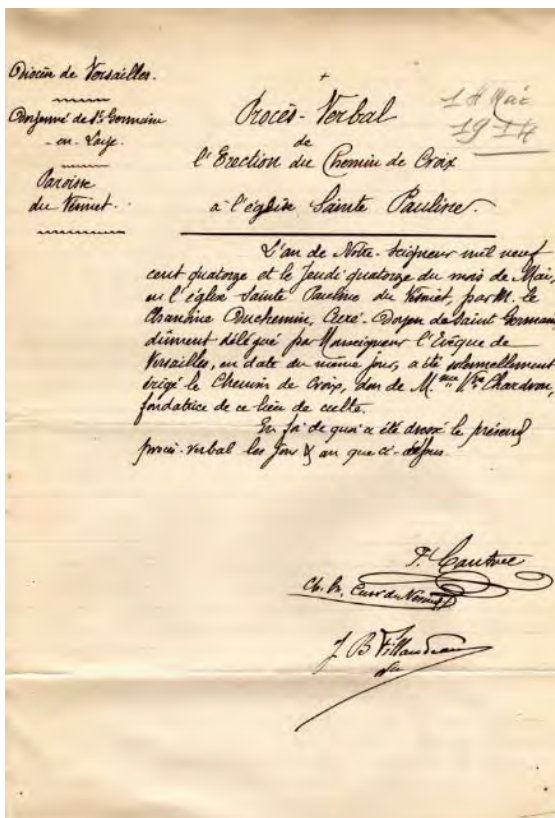 Diocèse de Versailles.
Doyenné de St Germain
- en - Laye.
Paroisse
du Vésinet.
14 Mai
1914
Procès-Verbal
de
l'Erection du Chemin de Croix
à l'église Sainte Pauline.
L'an de Notre-Seigneur mil neuf
cent quatorze et le Jeudi quatorze du mois de Mai,
en l'église Sainte Pauline du Vésinet, par M. le
Chanoine Duchemin, Curé-Doyen de Saint Germain
dûment délégué par Monseigneur l'Evêque de
Versailles, en date du même jour, a été solennellement
érigé le Chemin de Croix, don de Mme Vve Chardron,
fondatrice de ce lieu de culte.
En foi de quoi a été dressé le présent
procès-verbal les jour & an que ci-dessus.
Ch. h. Curé du Vésinet
J B